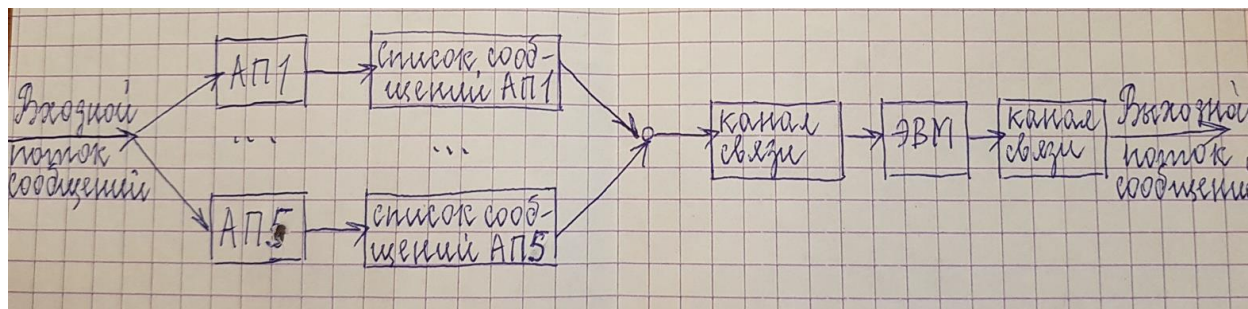 Входной
поток
сообщений
АП1
список сооб-
щений АП1
...
...
АП5
список сооб-
щений АП5
канал
связи
ЭВМ
канал
связи
Выходной
поток
сообщений